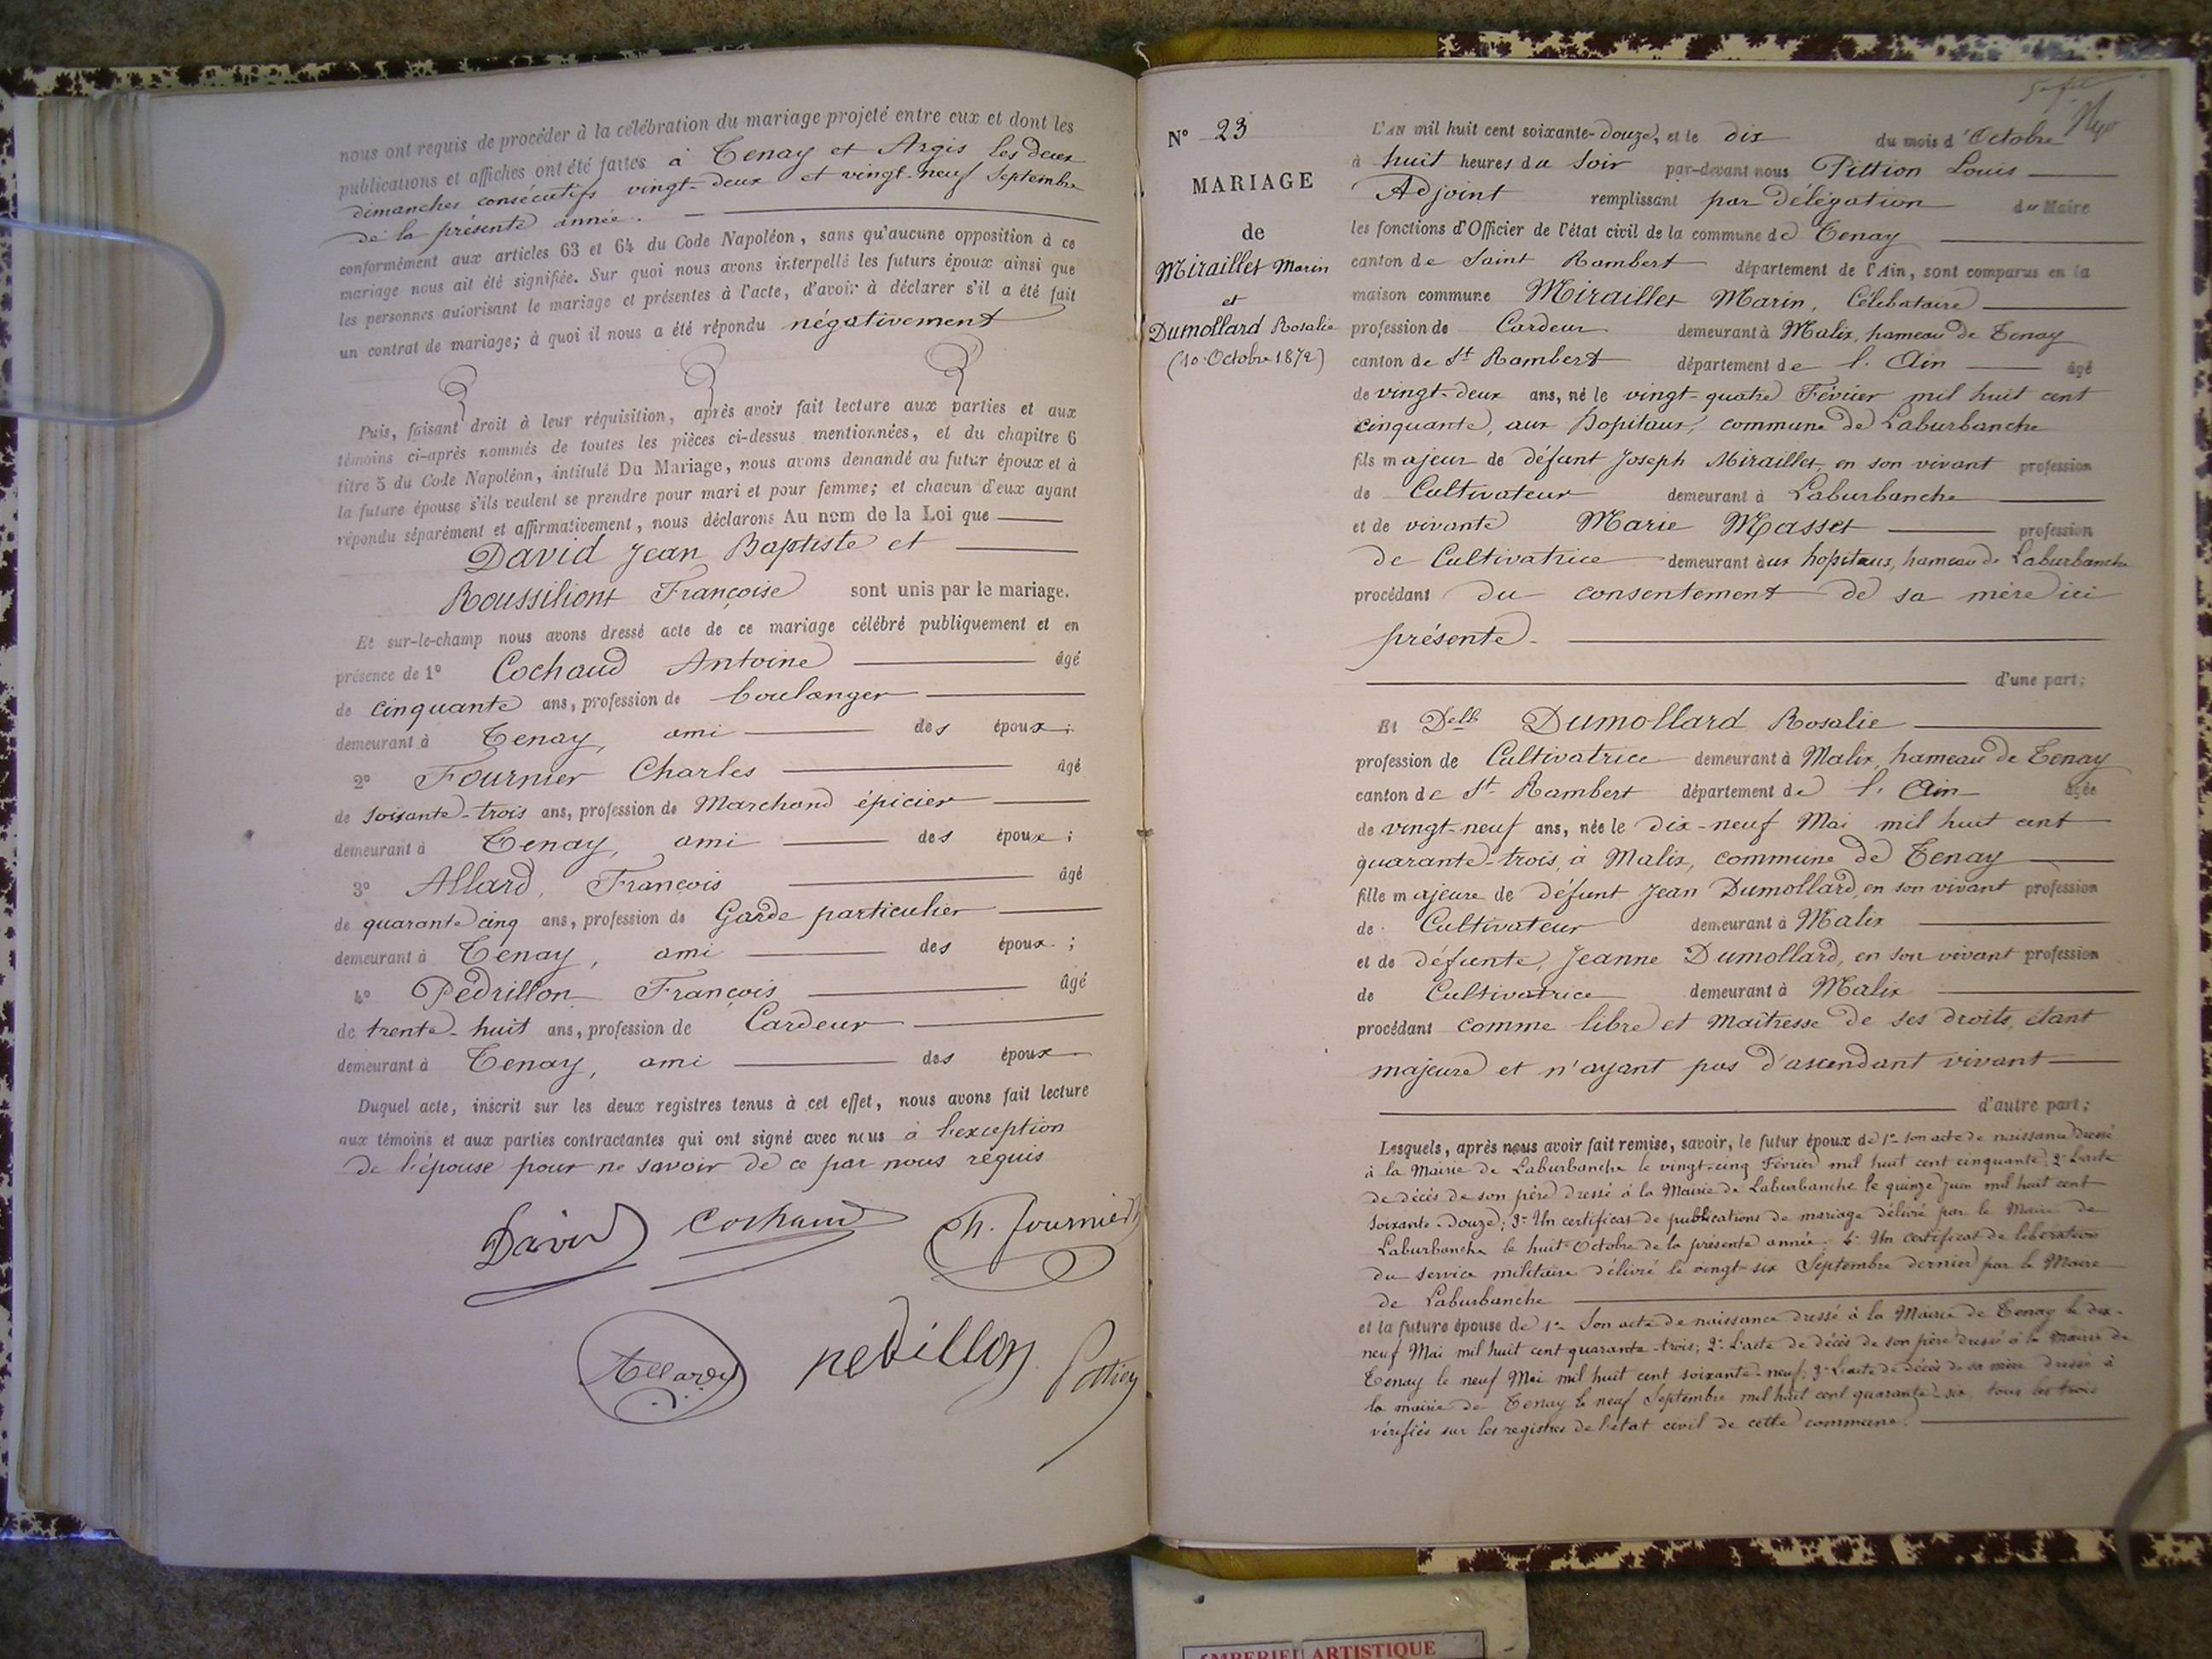 nous ont requis de procéder à la célébration du mariage projeté entre eux et dont les
publications et affiches ont été faites à Tenay et Argis les deux
dimanches consécutifs vingt-deux et vingt-neuf Septembre
de la présente année.
conformément aux articles 63 et 64 du Code Napoléon, sans qu'aucune opposition à ce
mariage nous ait été signifiée. Sur quoi nous avons interpellé les futurs époux ainsi que
les personnes autorisant le mariage et présentes à l'acte, d'avoir à déclarer s'il a été fait
un contrat de mariage; à quoi il nous a été répondu négativement
Puis, faisant droit à leur réquisition, après avoir fait lecture aux parties et aux
témoins ci-après nommés de toutes les pièces ci-dessus mentionnées, et du chapitre 6
titre 5 du Code Napoléon, intitulé Du Mariage, nous avons demandé au futur époux et à
la future épouse s'ils veulent se prendre pour mari et pour femme; et chacun d'eux ayant
répondu séparément et affirmativement, nous déclarons Au nom de la Loi que
David Jean Baptiste et
Roussilliont Françoise sont unis par le mariage.
Et sur-le-champ nous avons dressé acte de ce mariage célébré publiquement et en
présence de 1° Cochaud Antoine âgé
de cinquante ans, profession de boulanger
demeurant à Tenay, ami des époux;
2° Fournier Charles âgé
de soixante-trois ans, profession de Marchand épicier
demeurant à Tenay, ami des époux;
3° Allard, François âgé
de quarante cinq ans, profession de Garde particulier
demeurant à Tenay, ami des époux;
4° Pedrillon François âgé
de trente-huit ans, profession de Cardeur
demeurant à Tenay, ami des époux
Duquel acte, inscrit sur les deux registres tenus à cet effet, nous avons fait lecture
aux témoins et aux parties contractantes qui ont signé avec nous à l'exception
de l'épouse pour ne savoir de ce par nous requis
David Cochaud Ch. Fournier
Allard pedillon Pittion
N° 23
MARIAGE
de
Miraillet Marin
et
Dumollard Rosalie
(10 Octobre 1872)
L'AN mil huit cent soixante-douze, et le dix du mois d'Octobre
à huit heures du soir par-devant nous Pittion Louis
Adjoint remplissant par délégation du Maire
les fonctions d'Officier de l'état civil de la commune de Tenay
canton de Saint Rambert département de l'Ain, sont comparus en la
maison commune Miraillet Marin, Célibataire
profession de Cardeur demeurant à Malix, hameau de Tenay
canton de St Rambert département de l'Ain âgé
de vingt-deux ans, né le vingt-quatre Février mil huit cent
cinquante, aux hopitaux, commune de Laburbanche
fils majeur de défunt Joseph Miraillet, en son vivant profession
de Cultivateur demeurant à Laburbanche
et de vivante Marie Masset profession
de Cultivatrice demeurant aux hopitaux, hameau de Laburbanche
procédant du consentement de sa mère ici
présente.
d'une part;
Et Delle Dumollard Rosalie
profession de Cultivatrice demeurant à Malix, hameau de Tenay
canton de St Rambert département de l'Ain âgée
de vingt-neuf ans, née le dix-neuf Mai mil huit cent
quarante-trois, à Malix, commune de Tenay
fille majeure de défunt Jean Dumollard, en son vivant profession
de Cultivateur demeurant à Malix
et de défunte, Jeanne Dumollard, en son vivant profession
de Cultivatrice demeurant à Malix
procédant comme libre et maîtresse de ses droits, étant
majeure et n'ayant pas d'ascendant vivant
d'autre part;
Lesquels, après nous avoir fait remise, savoir, le futur époux de 1° son acte de naissance dressé
à la Mairie de Laburbanche le vingt-cinq Février mil huit cent cinquante; 2° L'acte
de décès de son père dressé à la Mairie de Laburbanche le quinze Juin mil huit cent
soixante-douze; 3° Un certificat de publications de mariage délivré par le Maire de
Laburbanche le huit Octobre de la présente année; 4° Un certificat de libération
du service militaire délivré le vingt-six Septembre dernier par le Maire
de Laburbanche
et la future épouse de 1° Son acte de naissance dressé à la Mairie de Tenay le dix-
neuf Mai mil huit cent quarante-trois; 2° L'acte de décès de son père dressé à la Mairie de
Tenay le neuf Mai mil huit cent soixante-neuf; 3° L'acte de décès de sa mère dressé à
la mairie de Tenay le neuf Septembre mil huit cent quarante-six, tous les trois
vérifiés sur les registres de l'état civil de cette commune.
ARTISTIQUE